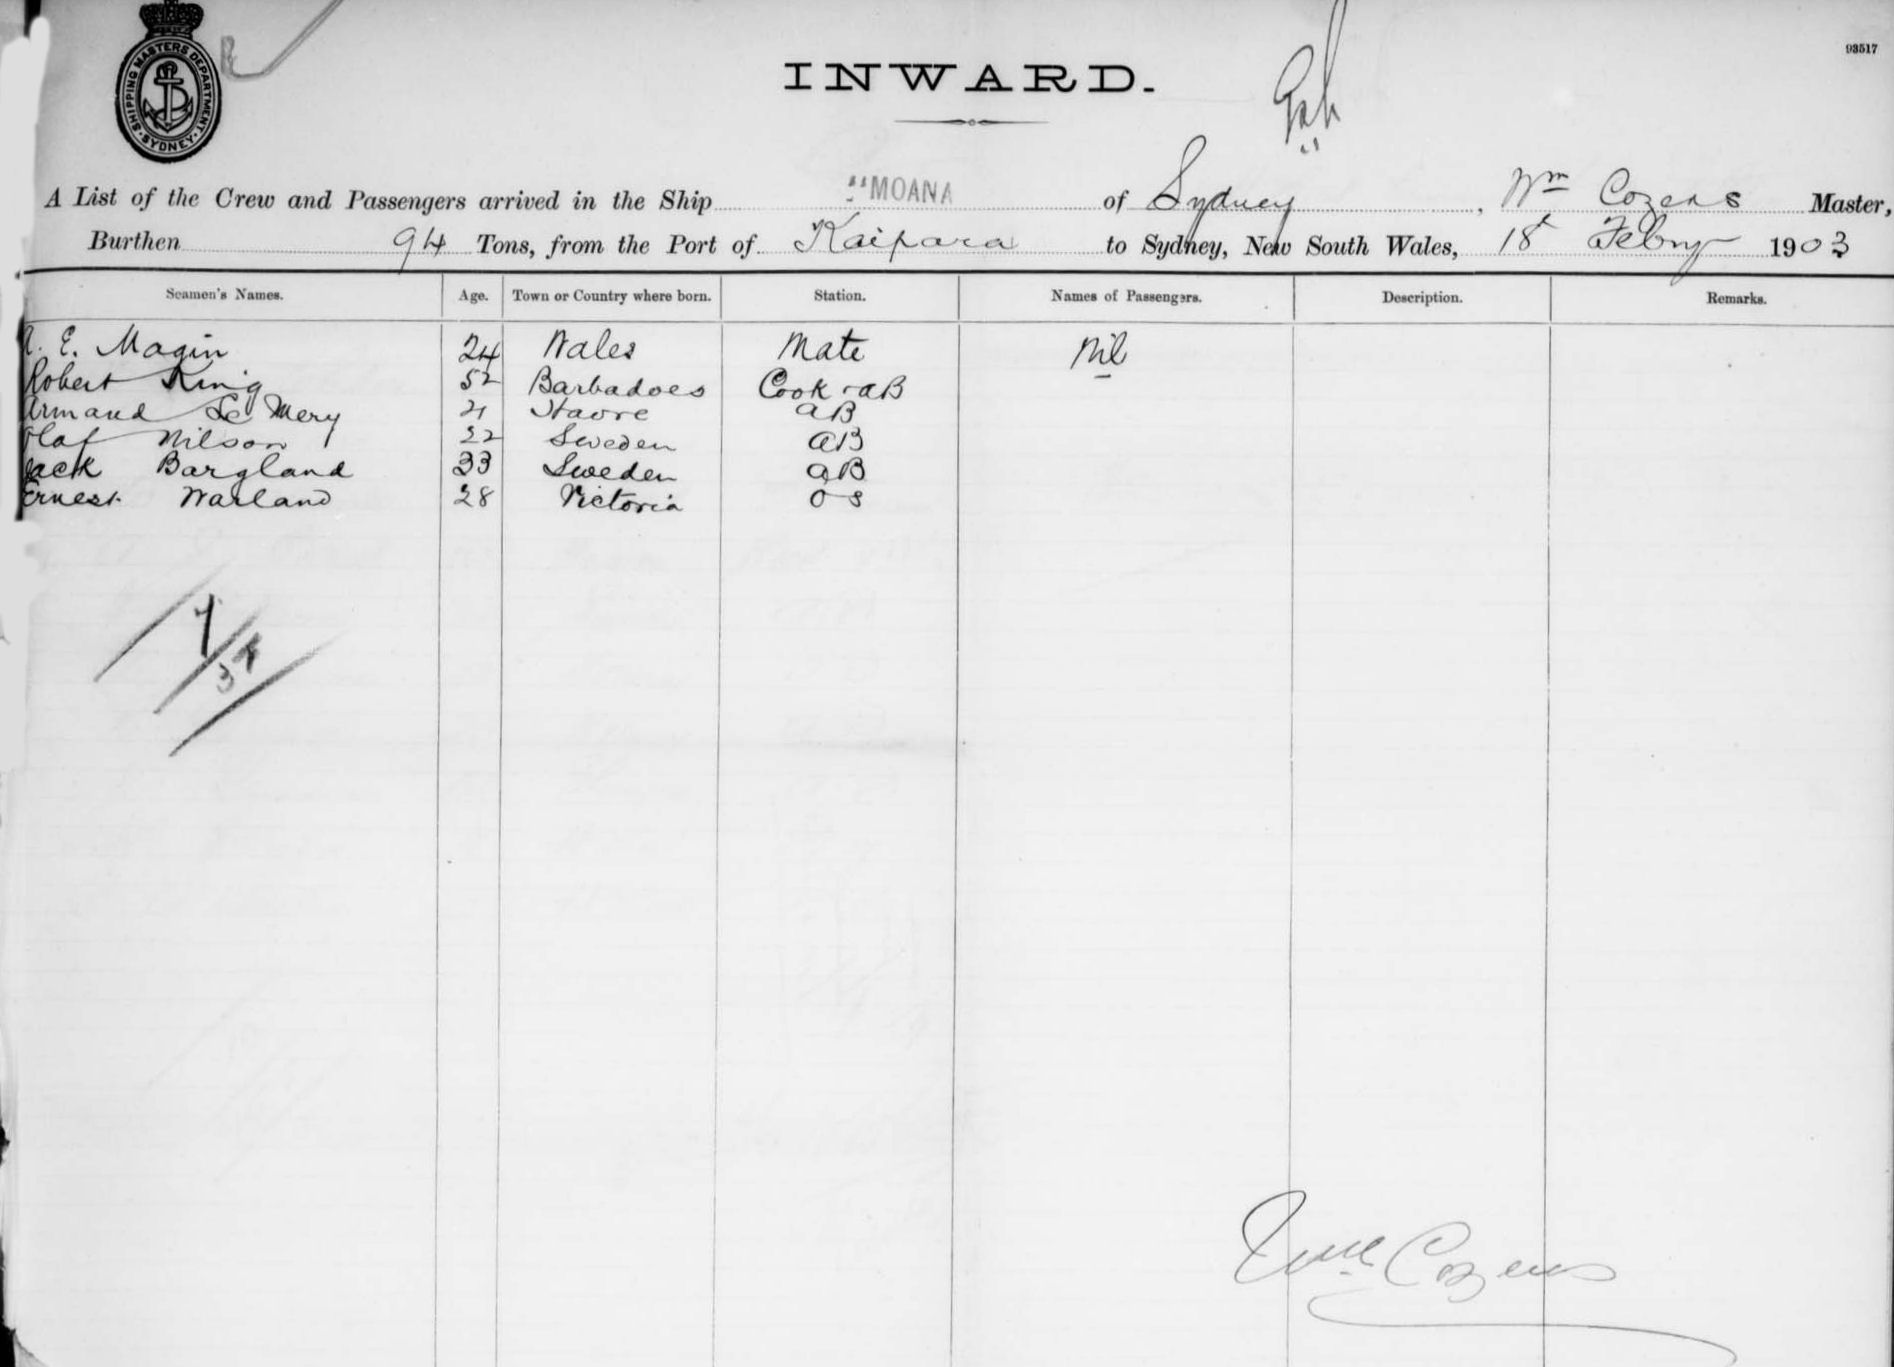 SHIPPING MASTERS DEPARTMENT
SYDNEY
93517
INWARD.
A List of the Crew and Passengers arrived in the Ship "MOANA of Sydney, Wm Cozens Master,
Burthen 94 Tons, from the Port of Kaipara to Sydney, New South Wales, 18 Febry 1903
Seamen's Names. Age. Town or Country where born. Station. Names of Passengers. Description. Remarks.
E. Magin 24 Wales Mate Nil
Robert King 52 Barbadoes Cook - AB
Armand Le Mery 21 Havre AB
Olaf Nilson 22 Sweden AB
Jack Bargland 33 Sweden AB
Ernest Warland 28 Victoria OS
7/34
Wm Cozens